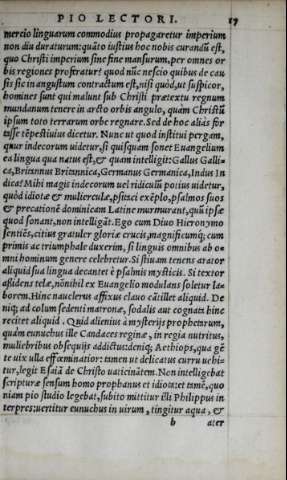 PIO LECTORI. 17
mercio linguarum commodius propagaretur imperium
non diu duraturum: quãto iustius hoc nobis curandũ est,
quo Christi imperium sine fine mansurum, per omnes or
bis regiones proferatur? quod nũc nescio quibus de cau
sis sic in angustum contractum est, nisi quòd, ut suspicor,
homines sunt qui malunt sub Christi prætextu regnum
mundanum tenere in arcto orbis angulo, quàm Christũ
ipsum toto terrarum orbe regnare. Sed de hoc aliàs for
tasse tẽpestiuius dicetur. Nunc ut quod institui pergam,
quur indecorum uidetur, si quisquam sonet Euangelium
ea lingua qua natus est, & quam intelligit: Gallus Galli=
ca, Britannus Britannica, Germanus Germanica, Indus In
dica? Mihi magis indecorum uel ridiculũ potius uidetur,
quòd idiotæ & mulierculæ, psitaci exẽplo, psalmos suos
& precationẽ dominicam Latine murmurant, quũ ipsæ
quod sonant, non intelligãt. Ego cum Diuo Hieronymo
sentiẽs, citius gratuler gloriæ crucis, magnificumq; cum
primis ac triumphale duxerim, si linguis omnibus ab o=
mni hominum genere celebretur. Si stiuam tenens arator
aliquid sua lingua decantet è psalmis mysticis. Si textor
assidens telæ, nõnihil ex Euangelio modulans soletur la=
borem. Hinc nauclerus affixus clauo cãtillet aliquid. De
niq; ad colum sedenti matronæ, sodalis aut cognata hinc
recitet aliquid. Quid alienius à mysterijs prophetarum,
quàm eunuchus ille Candaces reginæ, in regia nutritus,
muliebribus obsequijs addictus: deniq; Aethiops, qua gẽ
te uix ulla effœminatior: tamen ut delicatus curru uehi=
tur, legit Esaiã de Christo uaticinãtem. Non intelligebat
scripturæ sensum homo prophanus et idiota: et tamẽ, quo
niam pio studio legebat, subito mittitur illi Philippus in
terpres: uertitur eunuchus in uirum, tingitur aqua, &
b ater